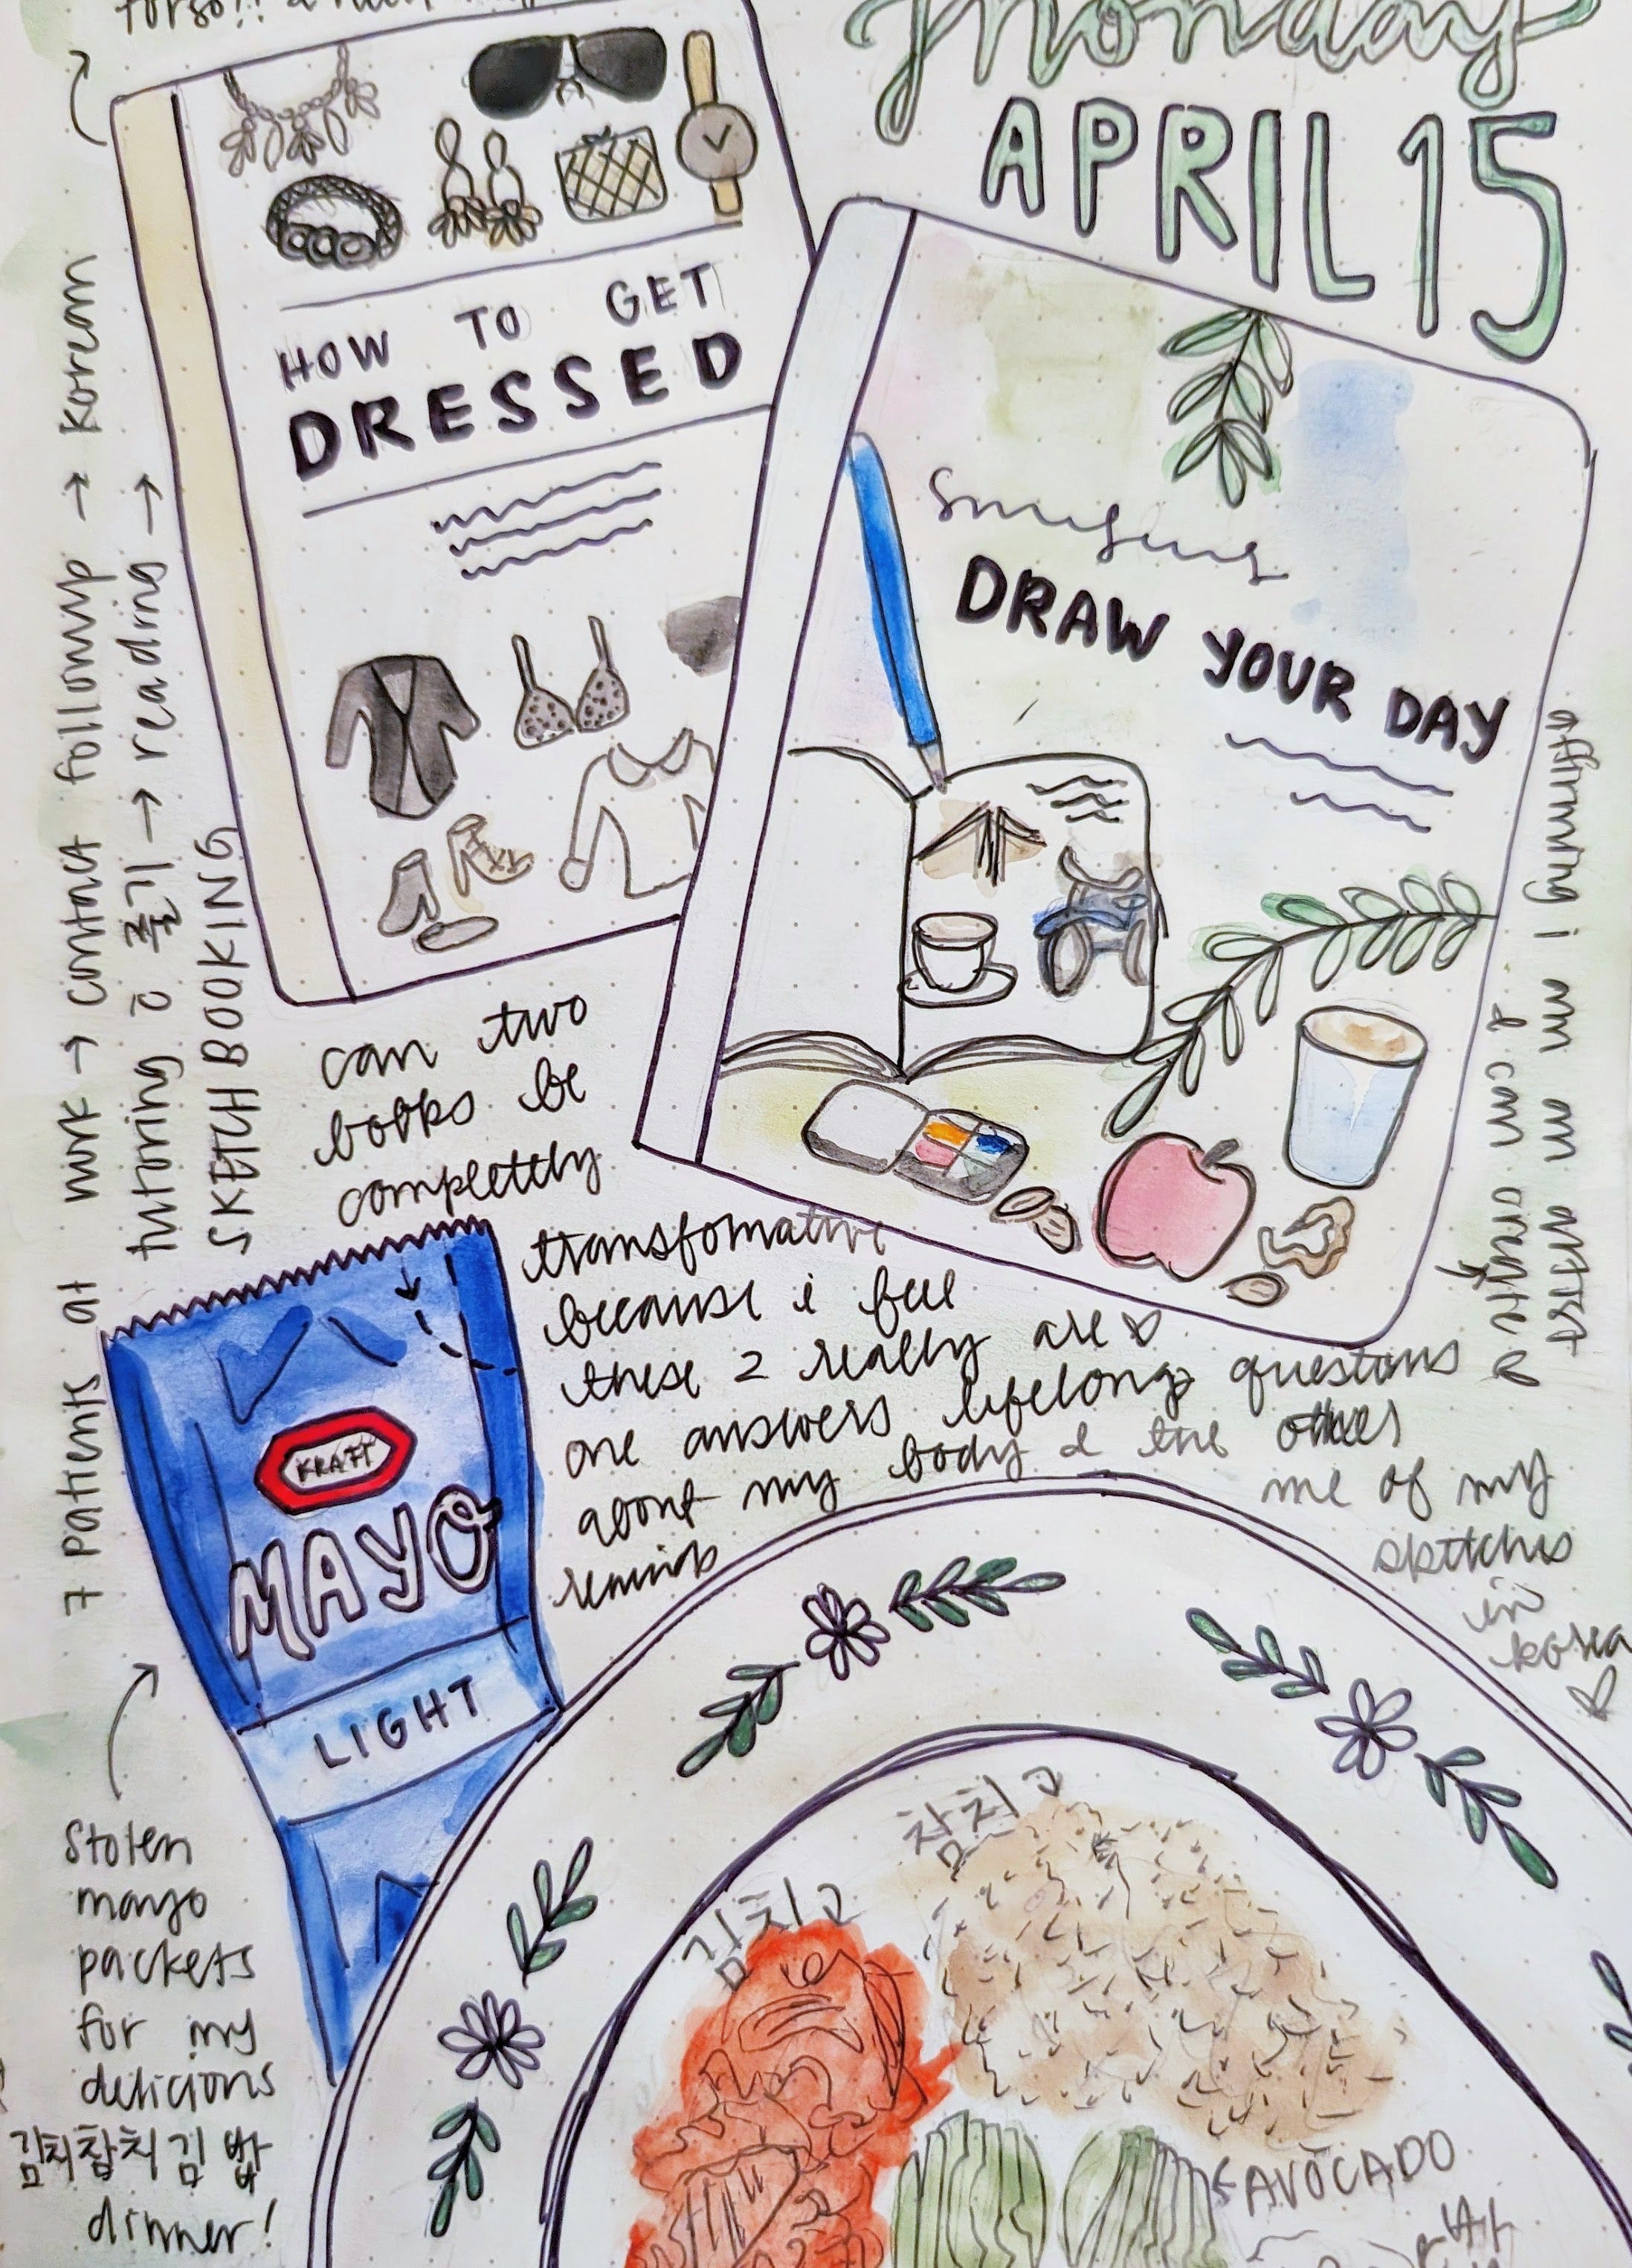 Monday
APRIL 15
HOW TO GET
DRESSED
DRAW YOUR DAY
7 patients at work → contact followup → Korean
tutoring c 졸기 → reading →
SKETCHBOOKING
can two
books be
completely
transfomative
because i feel
these 2 really are
one answers lifelong questions
about my body & the other
reminds me of my
sketches
in
korea
affirming i am an
artist & can create
KRAFT
MAYO
LIGHT
Stolen
mayo
packets
for my
delicious
김치참치김밥
dinner!
참치
김치
AVOCADO